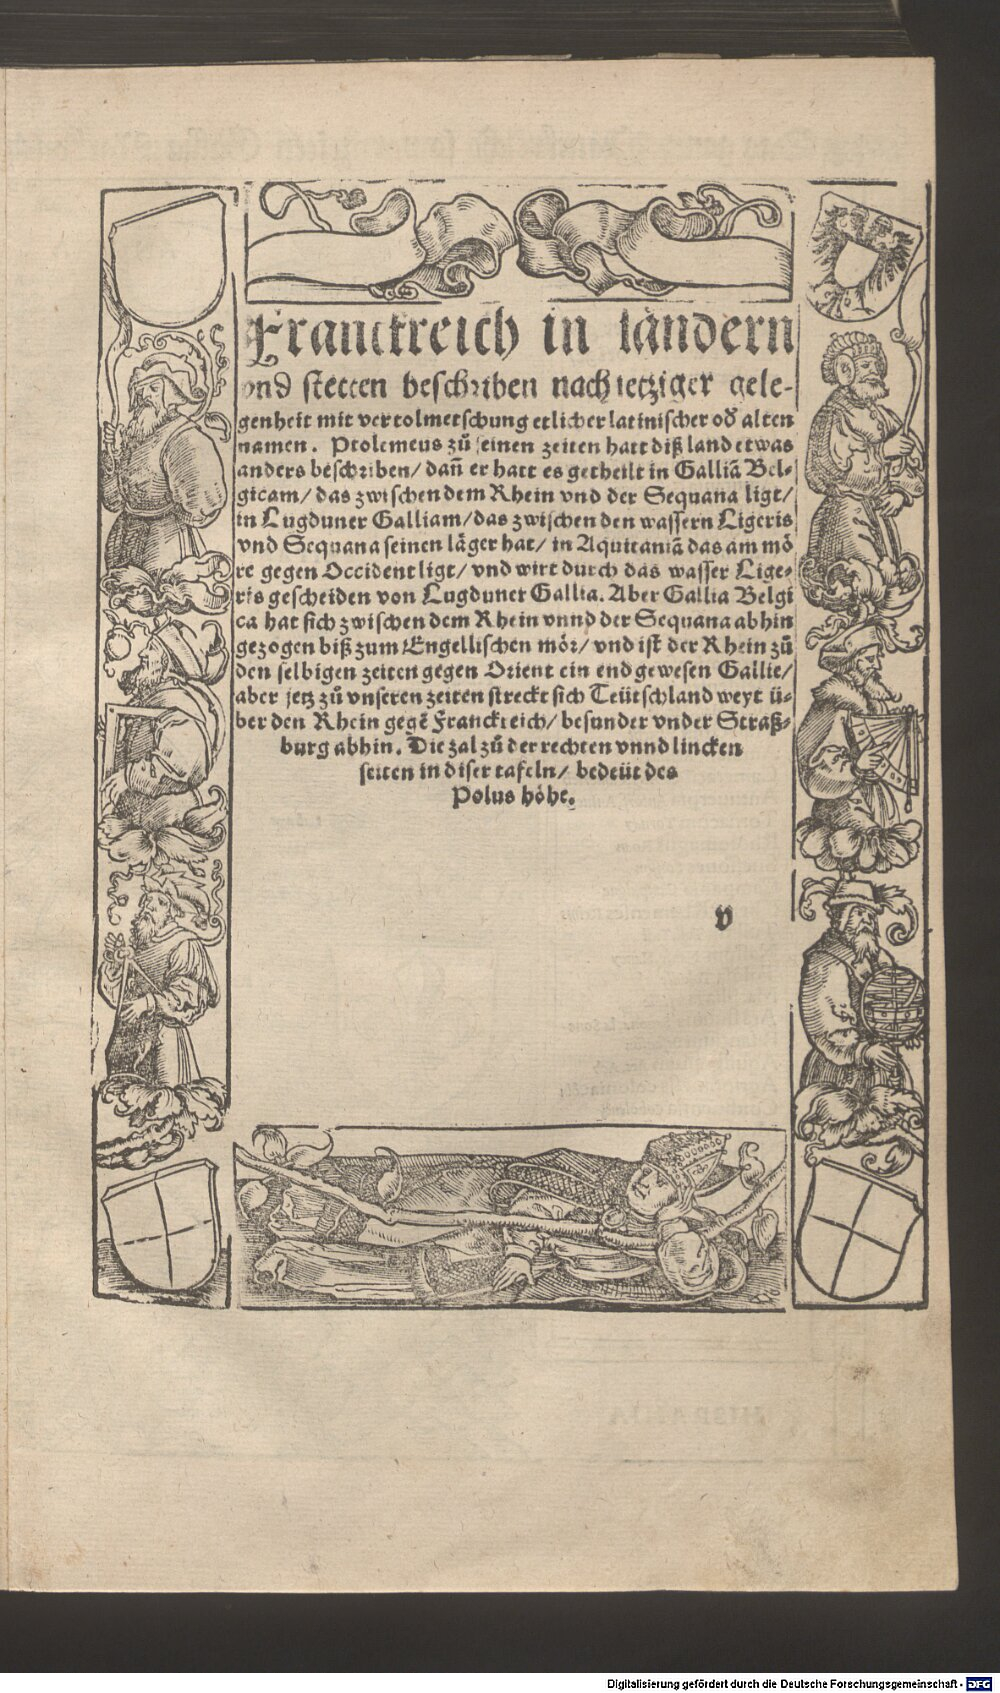 Franckreich inländern
vnd stetten beschriben nach ietziger gele-
genheit mit vertolmetschung etlicher latinischer od̕ alten
namen. Ptolemeus zů seinen zeiten hatt diß land etwas
anders beschriben/ dañ er hatt es getheilt in Galliã Bel-
gicam/ das zwischen dem Rhein vnd der Sequana ligt/
in Lugduner Galliam/ das zwischen den wassern Ligeris
vnd Sequana seinen läger hat/ in Aquitaniã das am mö
re gegen Occident ligt/ vnd wirt durch das wasser Lige-
ris gescheiden von Lugduner Gallia. Aber Gallia Belgi
ca hat sich zwischen dem Rhein vnnd der Sequana abhin
gezogen biß zum Engellischen mör/ vnd ist der Rhein zů
den selbigen zeiten gegen Orient ein end gewesen Gallie/
aber jetz zů vnseren zeiten streckt sich Teütschland weyt ü-
ber den Rhein gegẽ Franckreich/ besunder vnder Straß-
burg abhin. Die zal zů der rechten vnnd lincken
seiten in diser tafeln/ bedeüt des
Polus höhe.
v
Digitalisierung gefördert durch die Deutsche Forschungsgemeinschaft - DFG